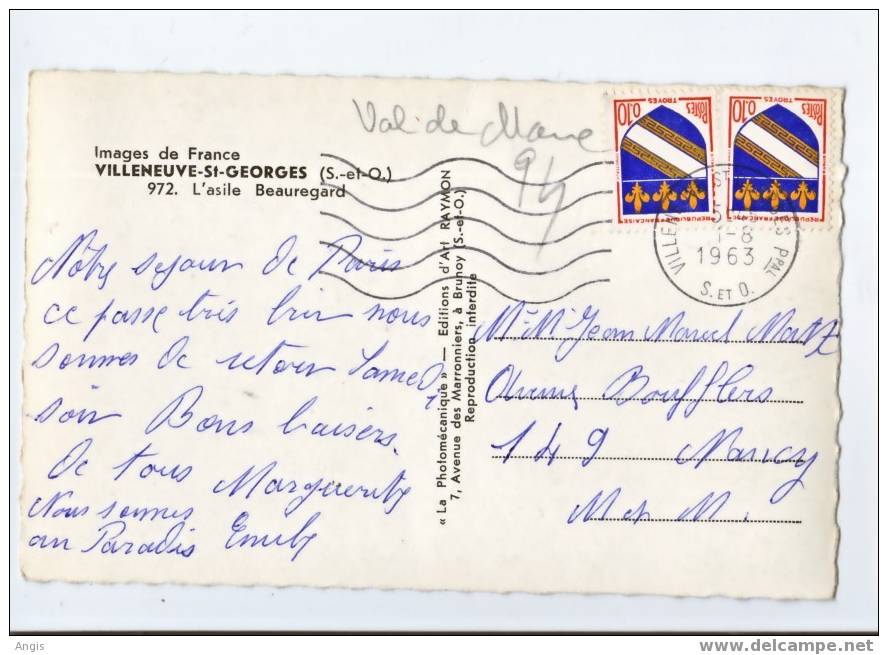 Val de Marne
94
Images de France
VILLENEUVE-St-GEORGES (S.-et-O.)
972. L'asile Beauregard
Nôtre sejour de Paris
ce passe très bien nous
sommes de retour Samedi
soir Bons baisers
de tous Marguerite
Nous sommes
au Paradis Emile
« La Photomécanique » — Editions d'Art RAYMON
7, Avenue des Marronniers, à Brunoy (S.-et-O.)
Reproduction interdite
POSTES
TROYES
0.10
REPUBLIQUE FRANCAISE
POSTES
TROYES
0.10
REPUBLIQUE FRANCAISE
VILLEN
ST
GES PPAL
1-8
1963
S. ET O.
Mr Me Jean Marcel Matz
Avenue Boufflers
149 Nancy
M et M.
Angis
www.delcampe.net